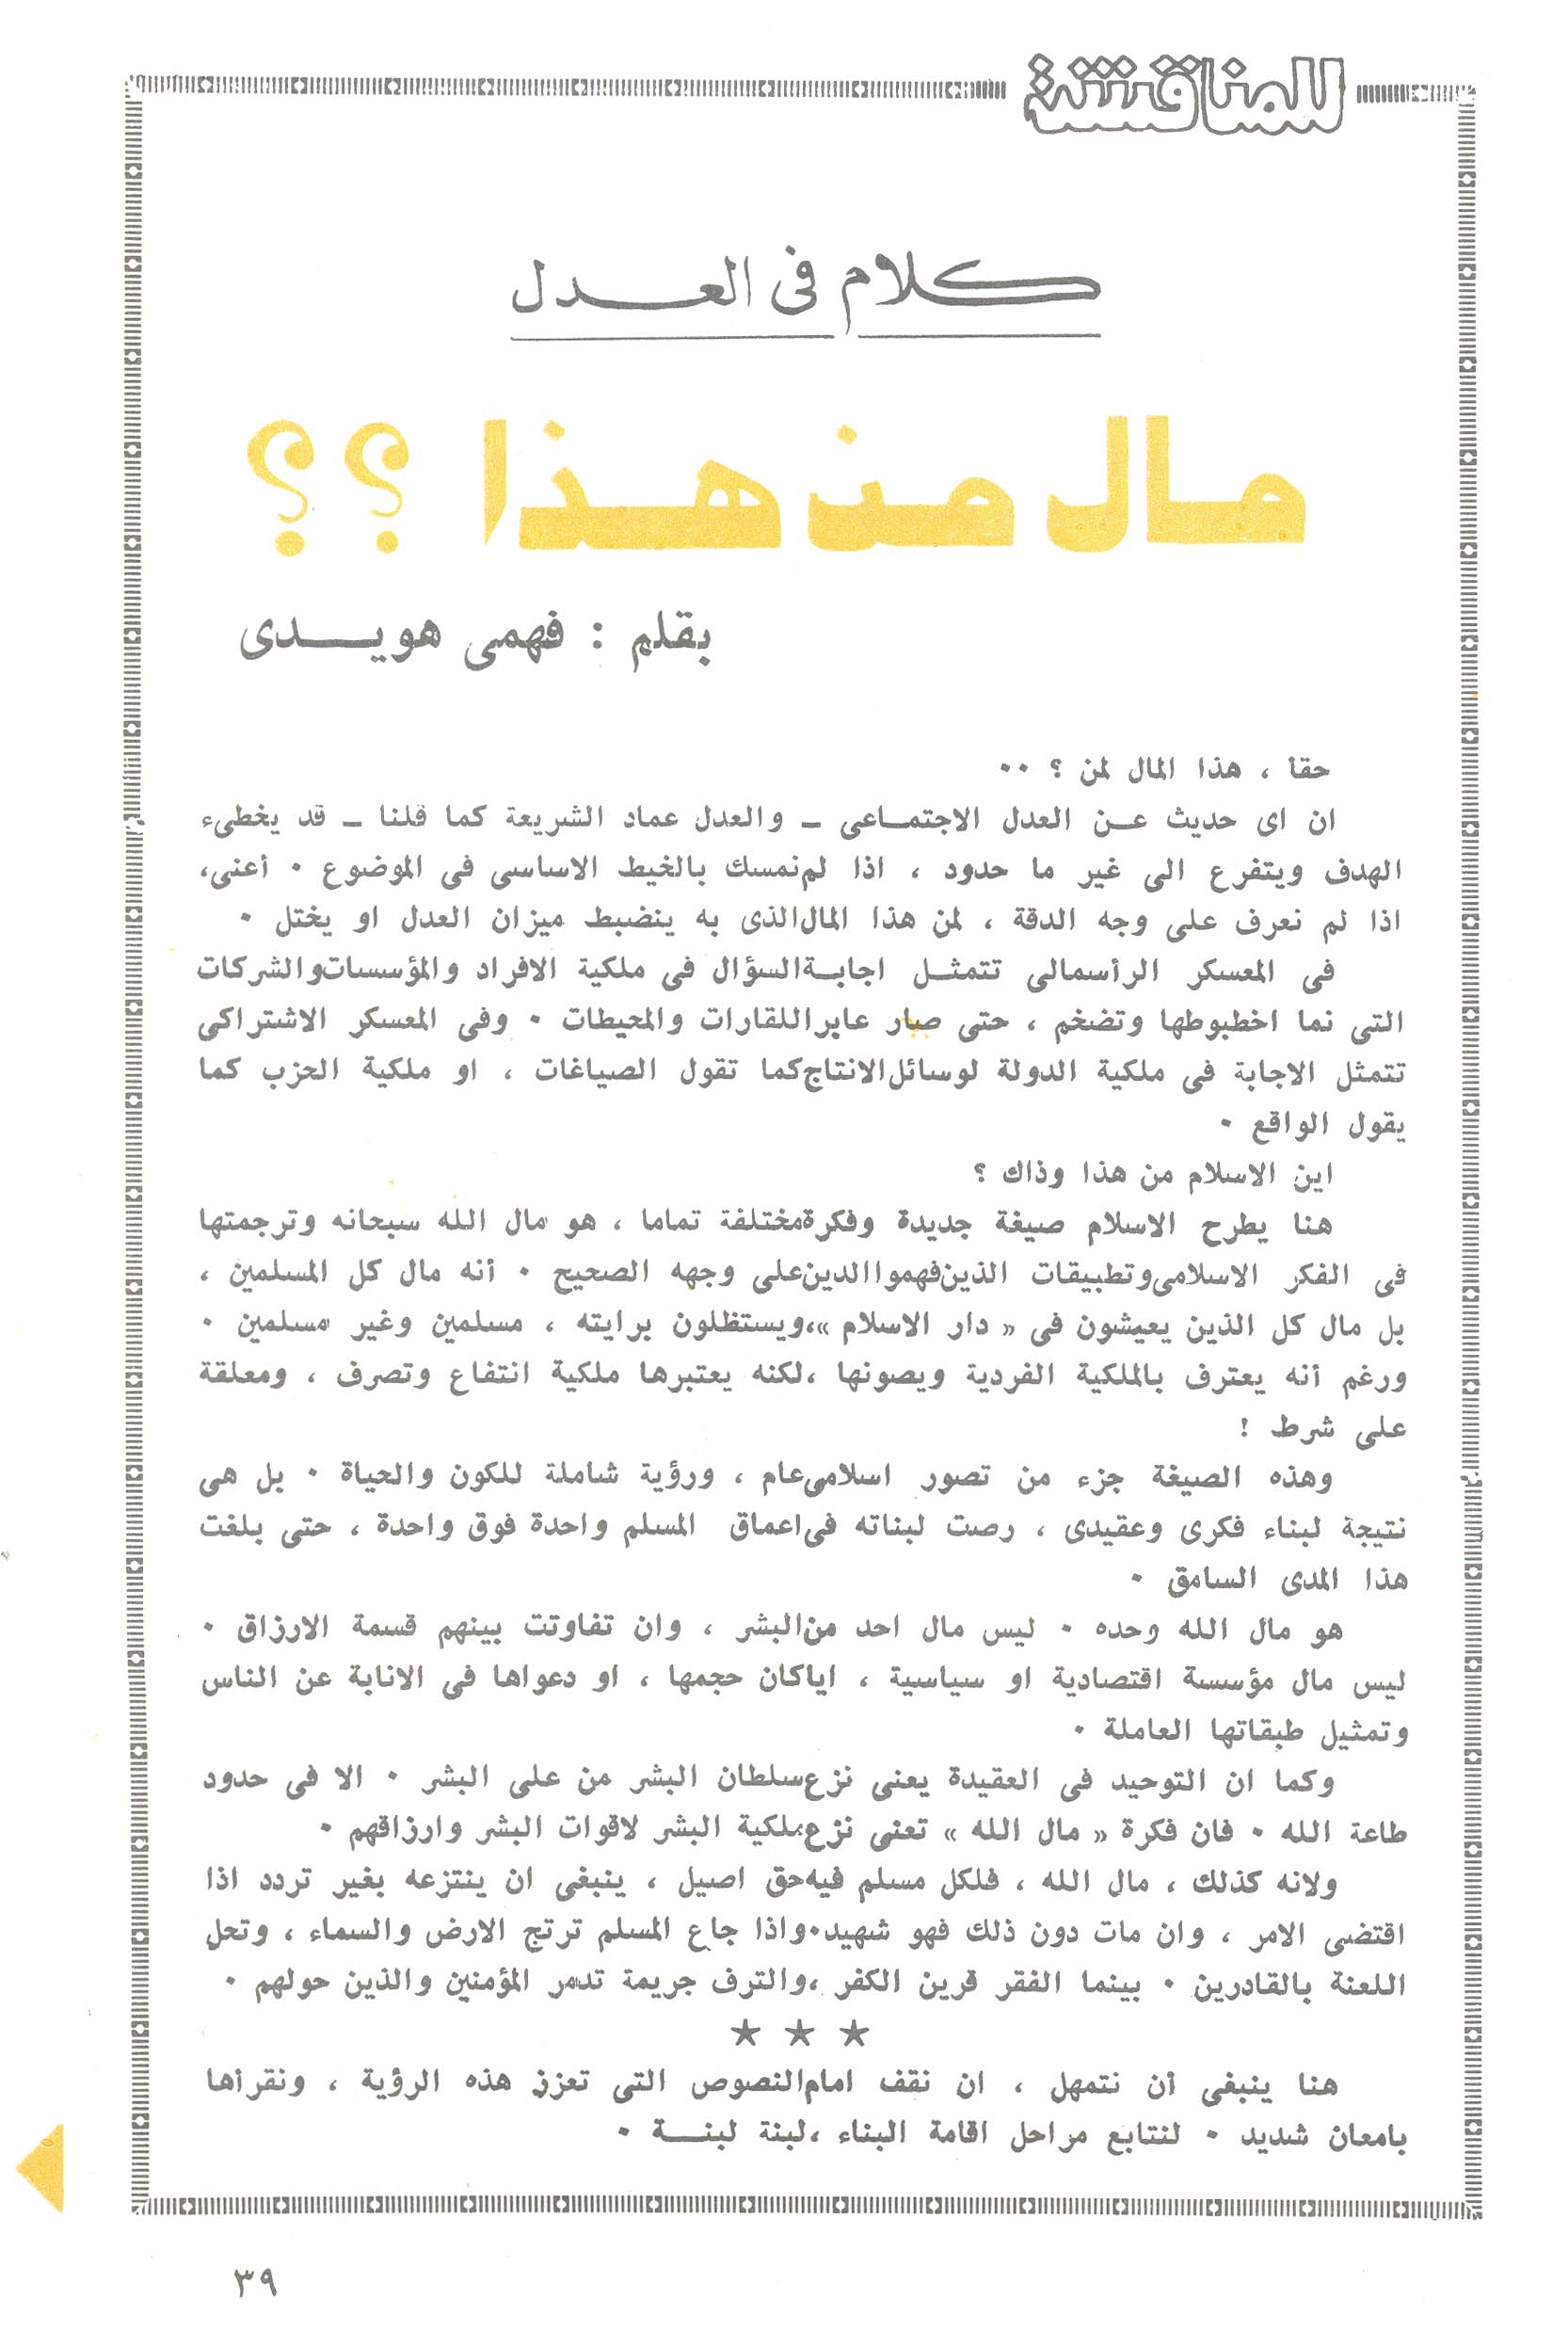 للمناقشة
كلام فى العدل
مال من هذا ؟؟
بقلم : فهمى هويدى
حقا ، هذا المال لمن ؟ ٠٠
ان اى حديث عن العدل الاجتماعى ـ والعدل عماد الشريعة كما قلنا ـ قد يخطىء
الهدف ويتفرع الى غير ما حدود ، اذا لم نمسك بالخيط الاساسى فى الموضوع ٠ أعنى،
اذا لم نعرف على وجه الدقة ، لمن هذا المال الذى به ينضبط ميزان العدل او يختل ٠
فى المعسكر الرأسمالى تتمثل اجابة السؤال فى ملكية الافراد والمؤسسات والشركات
التى نما اخطبوطها وتضخم ، حتى صار عابرا للقارات والمحيطات ٠ وفى المعسكر الاشتراكى
تتمثل الاجابة فى ملكية الدولة لوسائل الانتاج كما تقول الصياغات ، او ملكية الحزب كما
يقول الواقع ٠
اين الاسلام من هذا وذاك ؟
هنا يطرح الاسلام صيغة جديدة وفكرة مختلفة تماما ، هو مال الله سبحانه وترجمتها
فى الفكر الاسلامى وتطبيقات الذين فهموا الدين على وجهه الصحيح ٠ أنه مال كل المسلمين ،
بل مال كل الذين يعيشون فى « دار الاسلام »، ويستظلون برايته ، مسلمين وغير مسلمين ٠
ورغم أنه يعترف بالملكية الفردية ويصونها ، لكنه يعتبرها ملكية انتفاع وتصرف ، ومعلقة
على شرط !
وهذه الصيغة جزء من تصور اسلامى عام ، ورؤية شاملة للكون والحياة ٠ بل هى
نتيجة لبناء فكرى وعقيدى ، رصت لبناته فى اعماق المسلم واحدة فوق واحدة ، حتى بلغت
هذا المدى السامق ٠
هو مال الله وحده ٠ ليس مال احد من البشر ، وان تفاوتت بينهم قسمة الارزاق ٠
ليس مال مؤسسة اقتصادية او سياسية ، ايا كان حجمها ، او دعواها فى الانابة عن الناس
وتمثيل طبقاتها العاملة ٠
وكما ان التوحيد فى العقيدة يعنى نزع سلطان البشر من على البشر ٠ الا فى حدود
طاعة الله ٠ فان فكرة « مال الله » تعنى نزع ملكية البشر لاقوات البشر وارزاقهم ٠
ولانه كذلك ، مال الله ، فلكل مسلم فيه حق اصيل ، ينبغى ان ينتزعه بغير تردد اذا
اقتضى الامر ، وان مات دون ذلك فهو شهيد ٠ واذا جاع المسلم ترتج الارض والسماء ، وتحل
اللعنة بالقادرين ٠ بينما الفقر قرين الكفر ، والترف جريمة تدمر المؤمنين والذين حولهم ٠
★ ★ ★
هنا ينبغى أن نتمهل ، ان نقف امام النصوص التى تعزز هذه الرؤية ، ونقرأها
بامعان شديد ٠ لنتابع مراحل اقامة البناء ، لبنة لبنة ٠
٣٩